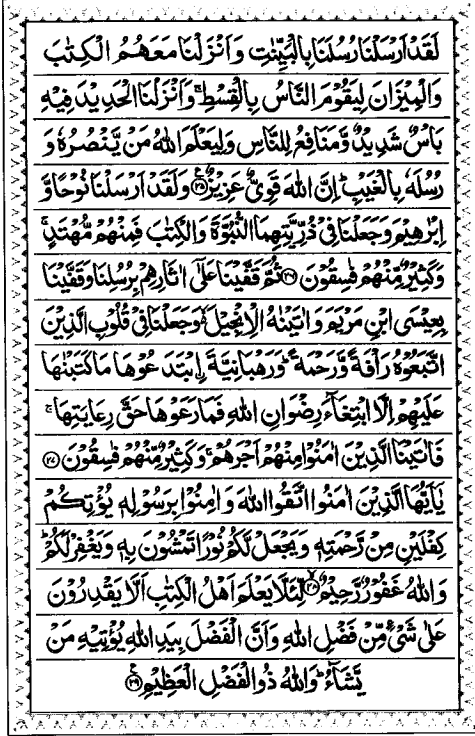 لَقَدْ اَرْسَلْنَا رُسُلَنَا بِالْبَیِّنٰتِ وَ اَنْزَلْنَا مَعَهُمُ الْكِتٰبَ
وَالْمِیْزَانَ لِیَقُوْمَ النَّاسُ بِالْقِسْطِ ۚ وَ اَنْزَلْنَا الْحَدِیْدَ فِیْهِ
بَاْسٌ شَدِیْدٌ وَّ مَنَافِعُ لِلنَّاسِ وَ لِیَعْلَمَ اللّٰهُ مَنْ یَّنْصُرُهٗ وَ
رُسُلَهٗ بِالْغَیْبِ ؕ اِنَّ اللّٰهَ قَوِیٌّ عَزِیْزٌ ﴿۲۵﴾ وَ لَقَدْ اَرْسَلْنَا نُوْحًا وَّ
اِبْرٰهِیْمَ وَ جَعَلْنَا فِیْ ذُرِّیَّتِهِمَا النُّبُوَّةَ وَ الْكِتٰبَ فَمِنْهُمْ مُّهْتَدٍ ۚ
وَ كَثِیْرٌ مِّنْهُمْ فٰسِقُوْنَ ﴿۲۶﴾ ثُمَّ قَفَّیْنَا عَلٰۤی اٰثَارِهِمْ بِرُسُلِنَا وَ قَفَّیْنَا
بِعِیْسَی ابْنِ مَرْیَمَ وَ اٰتَیْنٰهُ الْاِنْجِیْلَ ۙ۬ وَ جَعَلْنَا فِیْ قُلُوْبِ الَّذِیْنَ
اتَّبَعُوْهُ رَاْفَةً وَّ رَحْمَةً ؕ وَ رَهْبَانِیَّةَ ِ۟ابْتَدَعُوْهَا مَا كَتَبْنٰهَا
عَلَیْهِمْ اِلَّا ابْتِغَآءَ رِضْوَانِ اللّٰهِ فَمَا رَعَوْهَا حَقَّ رِعَایَتِهَا ۚ
فَاٰتَیْنَا الَّذِیْنَ اٰمَنُوْا مِنْهُمْ اَجْرَهُمْ ۚ وَ كَثِیْرٌ مِّنْهُمْ فٰسِقُوْنَ ﴿۲۷﴾
یٰۤاَیُّهَا الَّذِیْنَ اٰمَنُوا اتَّقُوا اللّٰهَ وَ اٰمِنُوْا بِرَسُوْلِهٖ یُؤْتِكُمْ
كِفْلَیْنِ مِنْ رَّحْمَتِهٖ وَ یَجْعَلْ لَّكُمْ نُوْرًا تَمْشُوْنَ بِهٖ وَ یَغْفِرْ لَكُمْ ؕ
وَ اللّٰهُ غَفُوْرٌ رَّحِیْمٌ ﴿۲۸﴾ۙ لِّئَلَّا یَعْلَمَ اَهْلُ الْكِتٰبِ اَلَّا یَقْدِرُوْنَ
عَلٰی شَیْءٍ مِّنْ فَضْلِ اللّٰهِ وَ اَنَّ الْفَضْلَ بِیَدِ اللّٰهِ یُؤْتِیْهِ مَنْ
یَّشَآءُ ؕ وَ اللّٰهُ ذُو الْفَضْلِ الْعَظِیْمِ ﴿۲۹﴾